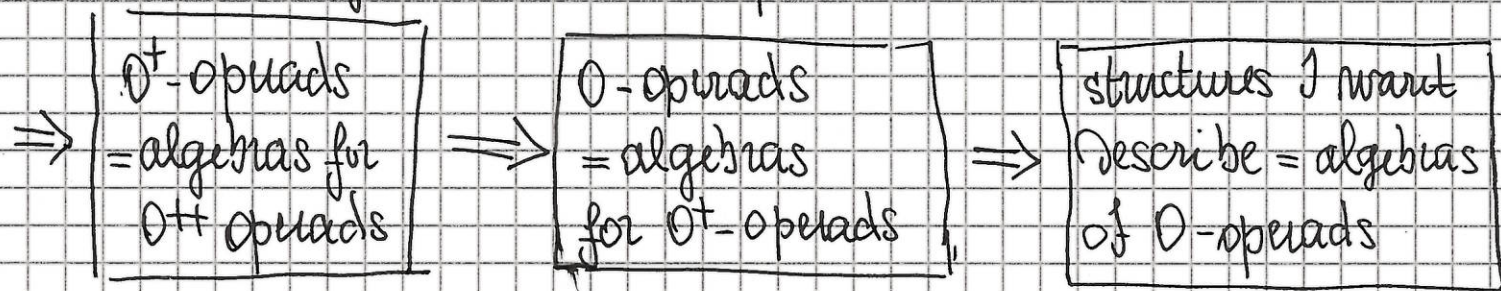 ⇒ O⁺-operads
= algebras for
O⁺⁺ operads
⇒ O-operads
= algebras
for O⁺-operads
⇒ structures I want
Describe = algebras
of O-operads